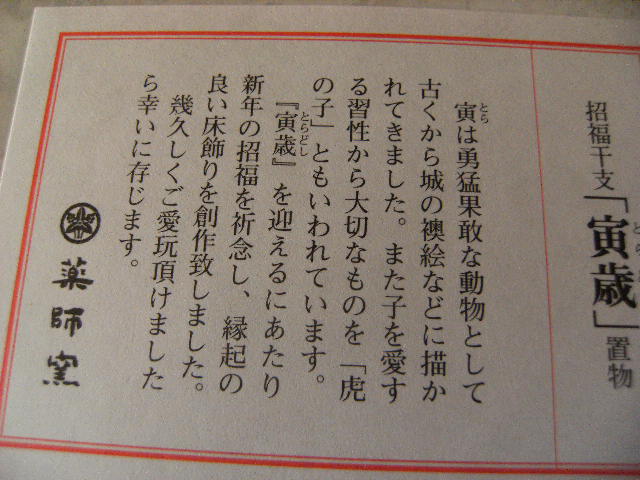 招福干支「寅歳」置物
寅は勇猛果敢な動物として
古くから城の襖絵などに描か
れてきました。また子を愛す
る習性から大切なものを「虎
の子」ともいわれています。
『寅歳』を迎えるにあたり
新年の招福を祈念し、縁起の
良い床飾りを創作致しました。
幾久しくご愛玩頂けました
ら幸いに存じます。
薬師窯